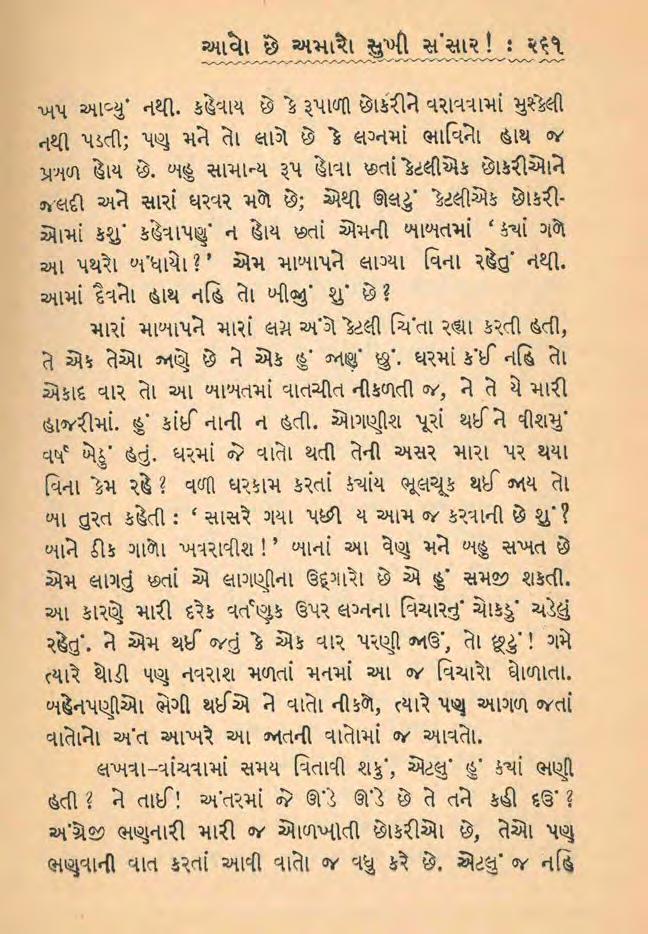 આવો છે અમારો સુખી સંસાર! : ૨૬૧
ખપ આવ્યું નથી. કહેવાય છે કે રૂપાળી છોકરીને વરાવવામાં મુશ્કેલી
નથી પડતી; પણ મને તો લાગે છે કે લગ્નમાં ભાવિનો હાથ જ
પ્રબળ હોય છે. બહુ સામાન્ય રૂપ હોવા છતાં કેટલીએક છોકરીઓને
જલદી અને સારાં ઘરવર મળે છે; એથી ઊલટું કેટલીએક છોકરી-
ઓમાં કશું કહેવાપણું ન હોય છતાં એમની બાબતમાં ‘ કયાં ગળે
આ પથરો બંધાયો?’ એમ માબાપને લાગ્યા વિના રહેતું નથી.
આમાં દૈવનો હાથ નહિ તો બીજું શું છે?
મારાં માબાપને મારાં લગ્ન અંગે કેટલી ચિંતા રહ્યા કરતી હતી,
તે એક તેઓ જાણે છે ને એક હું જાણું છું. ઘરમાં કંઈ નહિ તો
એકાદ વાર તો આ બાબતમાં વાતચીત નીકળતી જ, ને તે યે મારી
હાજરીમાં. હું કાંઈ નાની ન હતી. ઓગણીશ પૂરાં થઈ ને વીશમું
વર્ષ બેઠું હતું. ઘરમાં જે વાતો થતી તેની અસર મારા પર થયા
વિના કેમ રહે? વળી ઘરકામ કરતાં ક્યાંય ભૂલચૂક થઈ જાય તો
બા તુરત કહેતી : ‘ સાસરે ગયા પછી ય આમ જ કરવાની છે શું?
બાને ઠીક ગાળો ખવરાવીશ!’ બાનાં આ વેણુ મને બહુ સખત છે
એમ લાગતું છતાં એ લાગણીના ઉદ્ગારો છે એ હું સમજી શકતી.
આ કારણે મારી દરેક વર્તણુક ઉપર લગ્નના વિચારનું ચોકડું ચડેલું
રહેતું. ને એમ થઈ જતું કે એક વાર પરણી જાઉં, તો છૂટું! ગમે
ત્યારે થોડી પણ નવરાશ મળતાં મનમાં આ જ વિચારો ઘોળાતા.
બહેનપણીઓ ભેગી થઈએ ને વાતો નીકળે, ત્યારે પણ આગળ જતાં
વાતોનો અંત આખરે આ જાતની વાતોમાં જ આવતો.
લખવા–વાંચવામાં સમય વિતાવી શકું, એટલું હું કયાં ભણી
હતી? ને તાઈ! અંતરમાં જે ઊંડે ઊંડે છે તે તને કહી દઉં?
અંગ્રેજી ભણનારી મારી જ ઓળખીતી છોકરીઓ છે, તેઓ પણ
ભણવાની વાત કરતાં આવી વાતો જ વધુ કરે છે. એટલું જ નહિ